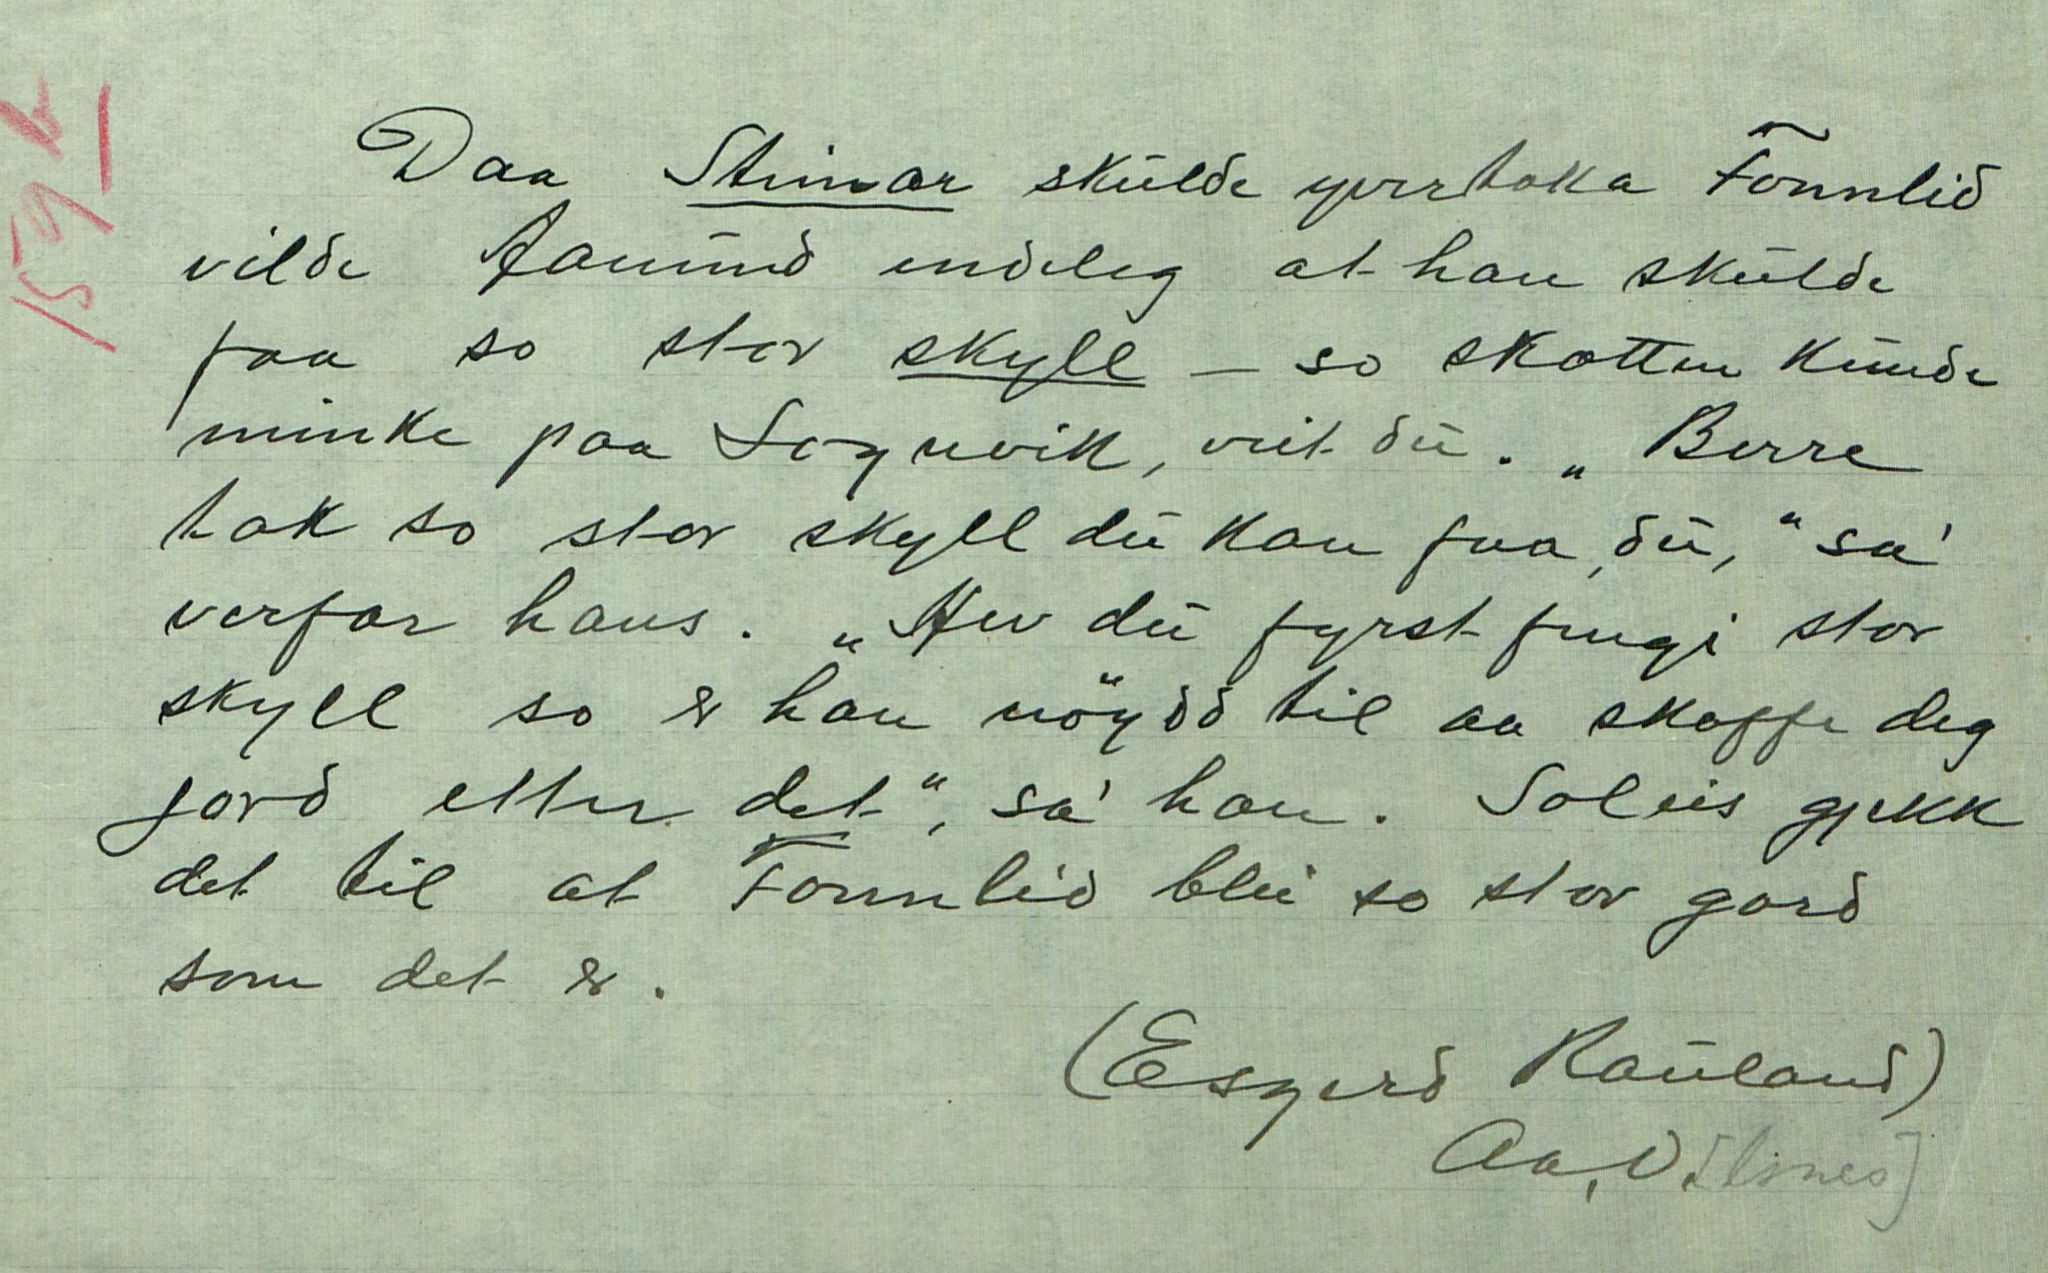 159 b
Daa Steinar skulde yvertaka Fonnlid
vilde Aamund endeleg at han skulde
faa so stor skyll – so skatten kunde
minke paa Sognvik, veit du. „Berre
tak so stor skyll du kan faa, du,“ sa'
verfar hans. „Hev du fyrst fengi stor
skyll so er han nöydd til aa skaffe deg
jord etter det“, sa' han. Soleis gjekk
det til at Fonnlid blei so stor gard
som det er.
(Esgerd Rauland)
Aa, V.